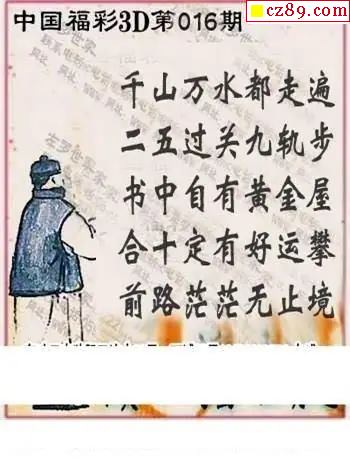 cz89.com
中国福彩3D第016期
千山万水都走遍
二五过关九轨步
书中自有黄金屋
合十定有好运攀
前路茫茫无止境